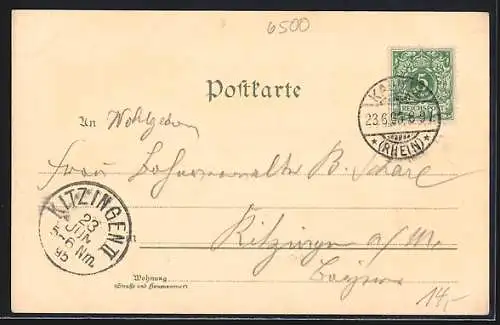 6500
Postkarte
5
REICHSPOST
23.6.95.8-9V.
*(RHEIN)*
An Wohlgeboren
Frau B.
KITZINGEN II
23
JUN
5-6 Nm.
95
in Kitzingen a/M.
Bayern
Wohnung
(Straße und Hausnummer)
14,-